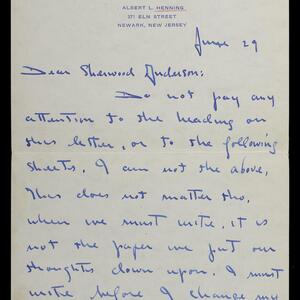 ALBERT L. HENNING
371 ELM STREET
NEWARK, NEW JERSEY
June 29
Dear Sherwood Anderson:
Do not pay any
attention to the heading on
this letter, or to the following
sheets. I am not the above.
This does not matter tho,
when we must write, it is
not the paper we put our
thoughts down upon. I must
write before I change my